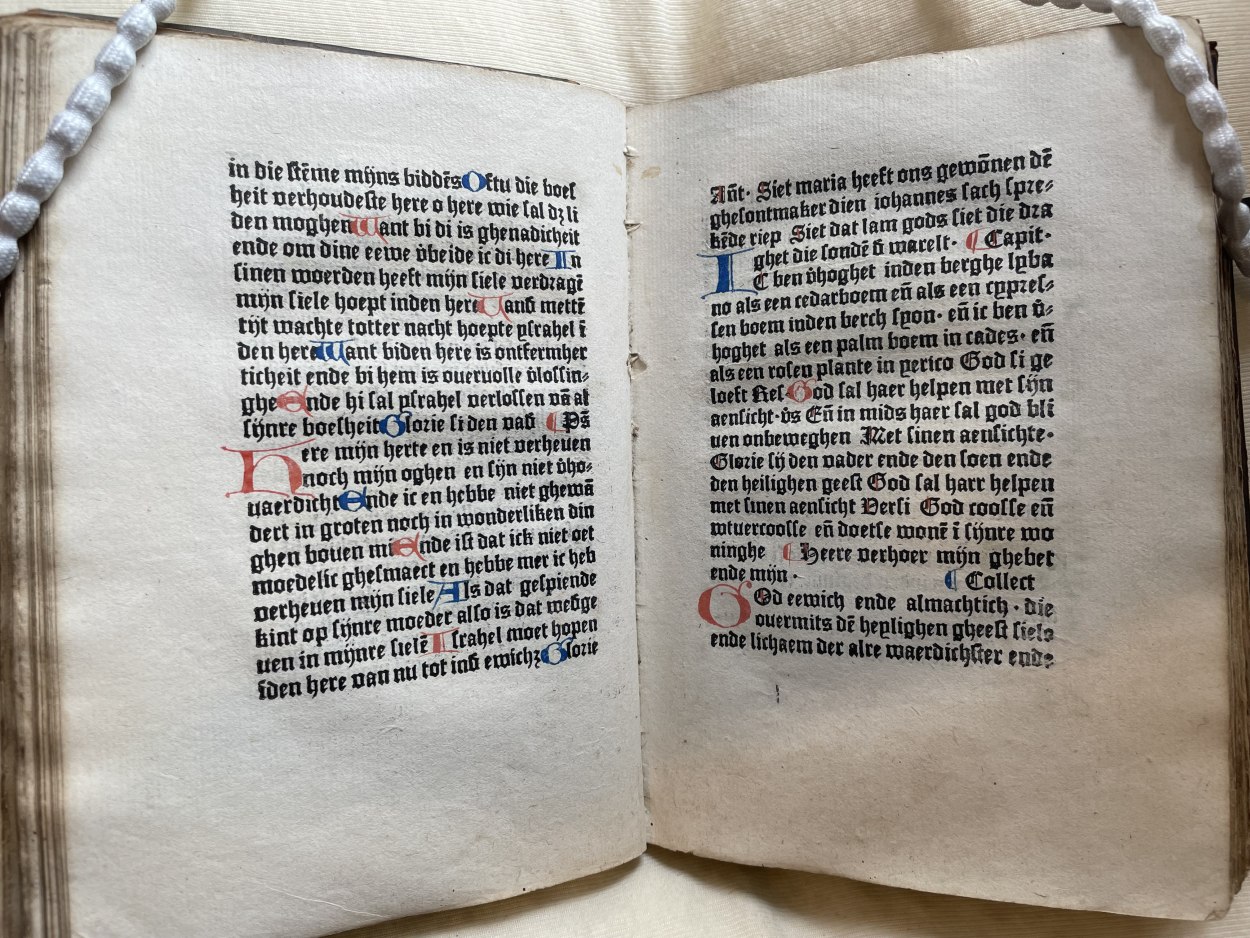 in die stēme mijns biddēs Oftu die boes
heit verhoudeste here o here wie sal dʒ li
den moghen Want bi di is ghenadicheit
ende om dine eewe v̄beide ic di here In
sinen woerden heeft mijn siele verdragē
mijn siele hoept inden here Vand mettē
tijt wachte totter nacht hoepte ysrahel ī
den here Want biden here is ontfermher
ticheit ende bi hem is oueruolle v̄lossin⸗
ghe Ende hi sal ysrahel verlossen vā al
sijnre boesheit Glorie si den vad ¶ Ps̄
Here mijn herte en is niet verheuen
noch mijn oghen en sijn niet v̄ho⸗
uaerdicht Ende ic en hebbe niet ghewā
dert in groten noch in wonderliken din
ghen bouen mi Ende ist dat ick niet oet
moedelic ghesmaect en hebbe mer ic heb
verheuen mijn siele Als dat gespiende
kint op sijnre moeder also is dat wedge
uen in mijnre sielē Israhel moet hopen
īden here van nu tot ind ewichʒ Glorie
Ant̄· Siet maria heeft ons gewōnen dē
ghesontmaker dien iohannes sach spre⸗
kēde riep Siet dat lam gods siet die dra
ghet die sondē d̄ warelt· ¶ Capit·
IC ben v̄hoghet inden berghe lyba
no als een cedarboem en̄ als een cypres⸗
sen boem inden berch syon· en̄ ic ben v̄⸗
hoghet als een palm boem in cades· en̄
als een rosen plante in yerico God si ge
loeft Res· God sal haer helpen met sijn
aensicht· v̄s En̄ in mids haer sal god bli
uen onbeweghen Met sinen aensichte·
Glorie sij den vader ende den soen ende
den heilighen geest God sal harr helpen
met sinen aensicht Versi God coosse en̄
wtuercoosse en̄ doetse wonē ī sijnre wo
ninghe ¶ Heere verhoer mijn ghebet
ende mijn· ¶ Collect
GOd eewich ende almachtich· die
ouermits dē heylighen gheest siele
ende lichaem der alre waerdichster ende